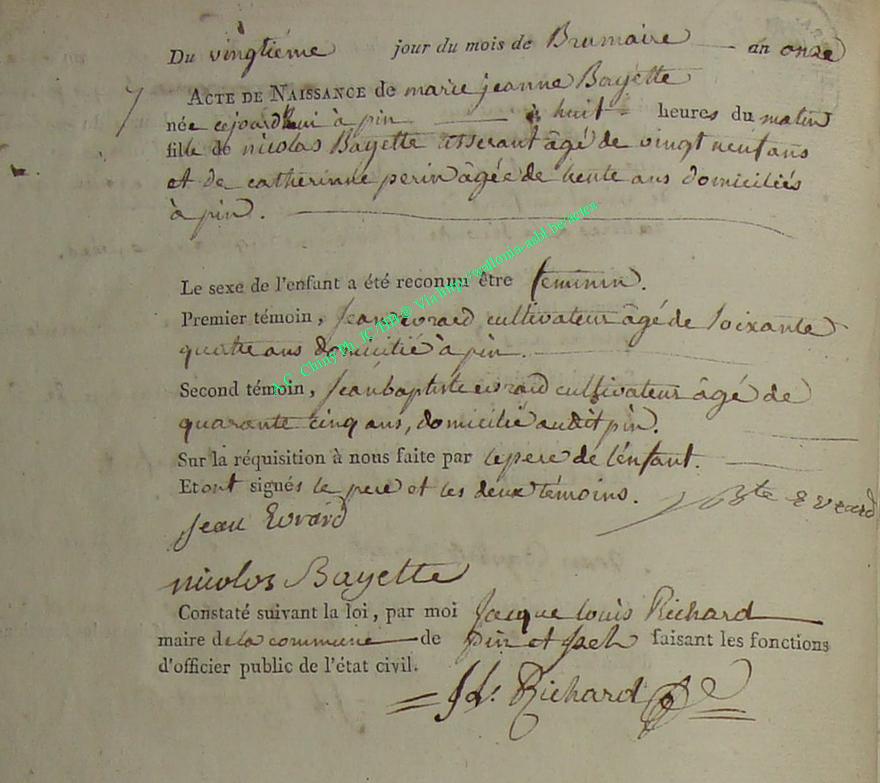 Du vingtiéme jour du mois de Brumaire an onze
7 ACTE DE NAISSANCE de marie jeanne Bayette
née cejourdhui à pin à huit heures du matin
fille de nicolas Bayette tisserant âgé de vingt neuf ans
et de catherinne perin âgée de trente ans domiciliés
à pin.
Le sexe de l'enfant a été reconnu être feminin.
Premier témoin, Jean evrard cultivateur âgé de soixante
quatre ans domicilié à pin.
Second témoin, Jean baptiste evrard cultivateur âgé de
quarante cinq ans, domicilié audit pin.
Sur la réquisition à nous faite par le pere de l'enfant.
Et ont signés le pere et les deux témoins.
Jean Evrard
J Bte Evrard
nicolos Bayette
Constaté suivant la loi, par moi Jacque louis Richard
maire de la commune de pin et izel faisant les fonctions
d'officier public de l'état civil.
J L. Richard
A.C. Chiny Ph. JC Via http://wallonia-asbl.be/actes